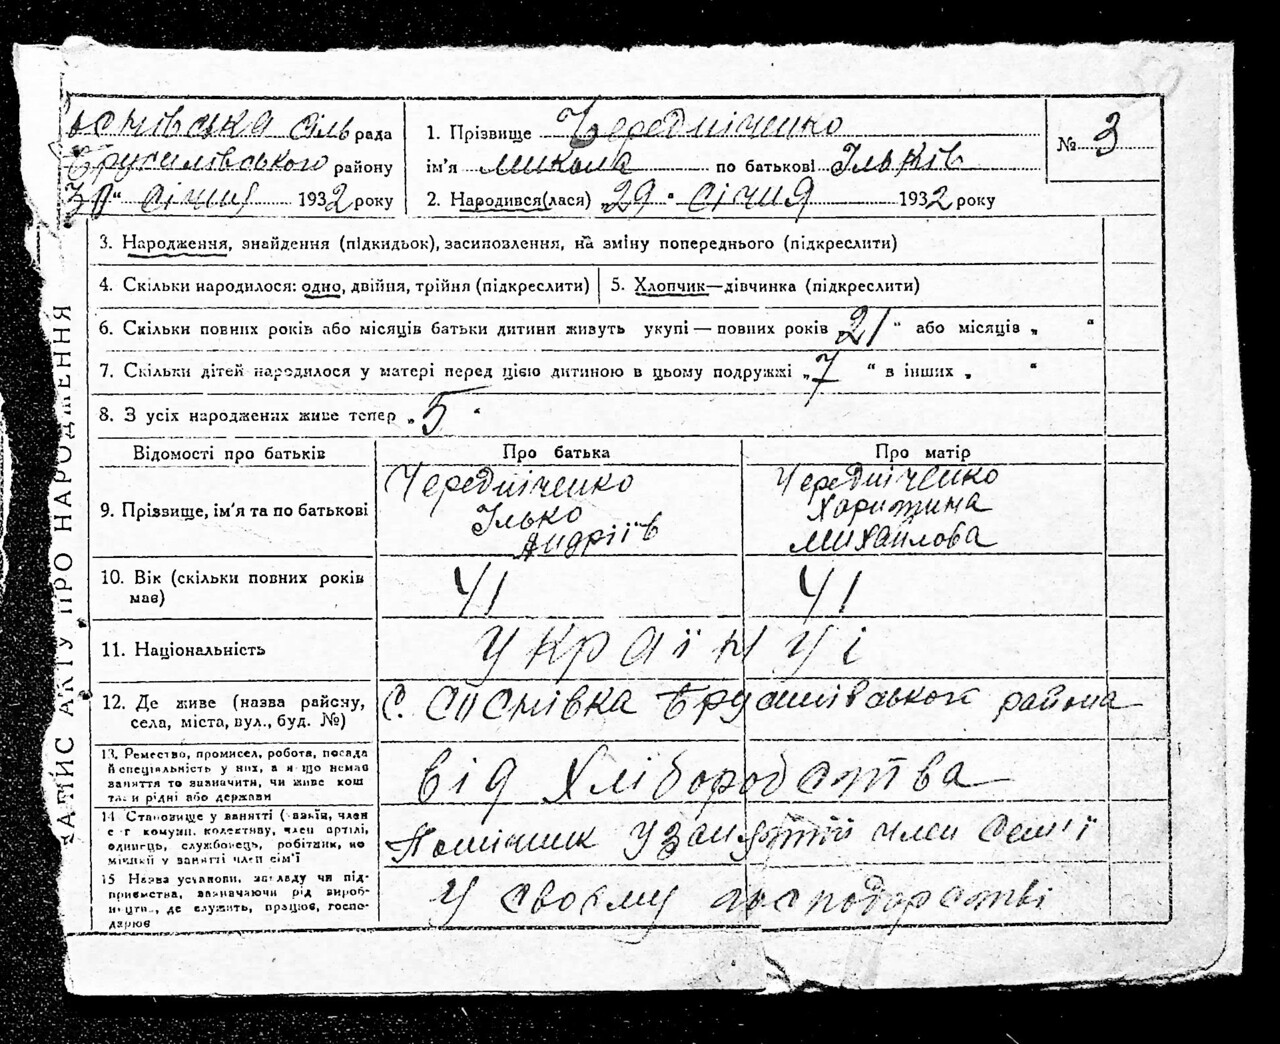 сільрада
Брусилівського району
30 " січня 1932 року
1. Прізвище Чередніченко
ім'я микола по батькові Ільків
2. Народився(лася) „29 " січня 1932 року
№ 3
3. Народження, знайдення (підкидьок), засиновлення, на зміну попереднього (підкреслити)
4. Скільки народилося: одно, двійня, трійня (підкреслити)
5. Хлопчик—дівчинка (підкреслити)
6. Скільки повних років або місяців батьки дитини живуть укупі — повних років „21 " або місяців „ "
7. Скільки дітей народилося у матері перед цією дитиною в цьому подружжі „7 " в інших „ "
8. З усіх народжених живе тепер „5 "
Відомості про батьків
Про батька
Про матір
9. Прізвище, ім'я та по батькові
Чередніченко
Ілько
Андріїв
Чередніченко
Харитина
михайлова
10. Вік (скільки повних років
має)
41
41
11. Національність
Українці
12. Де живе (назва району,
села, міста, вул., буд. №)
с. Брусилівського района
13. Ремество, промисел, робота, посада
й спеціальність у них, а якщо немає
заняття то визначити, чи живе кош
там и рідні або держави
від Хліборобства
14 Становище у занятті (хазяїн, член
с-г комуни, колективу, член артілі,
одинець, службовець, робітник, по
мішний у занятті член сім'ї
Помішник у занятті член сем'ї
15 Назва установи, закладу чи під-
приємства, зазначаючи рід вироб-
ництв, де служить, працює, госпо-
дарює
у своєму господарстві
ЗАПИС АКТУ ПРО НАРОДЖЕННЯ